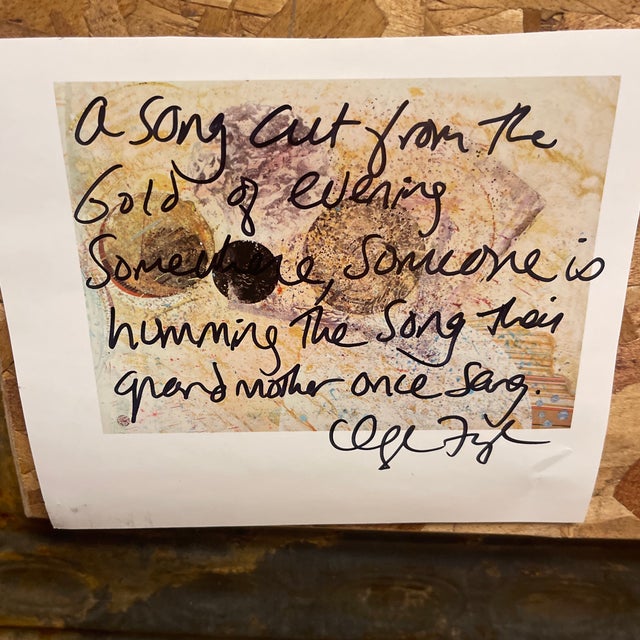 A song cut from the
Gold of evening
Somewhere, Someone is
humming the song their
grandmother once sang.